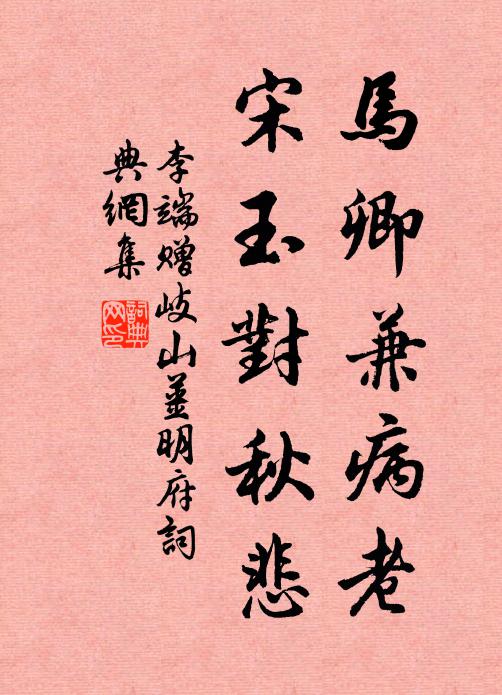 馬卿兼病老
宋玉對秋悲
李端贈岐山姜明府詞
典網集
詞典
网印